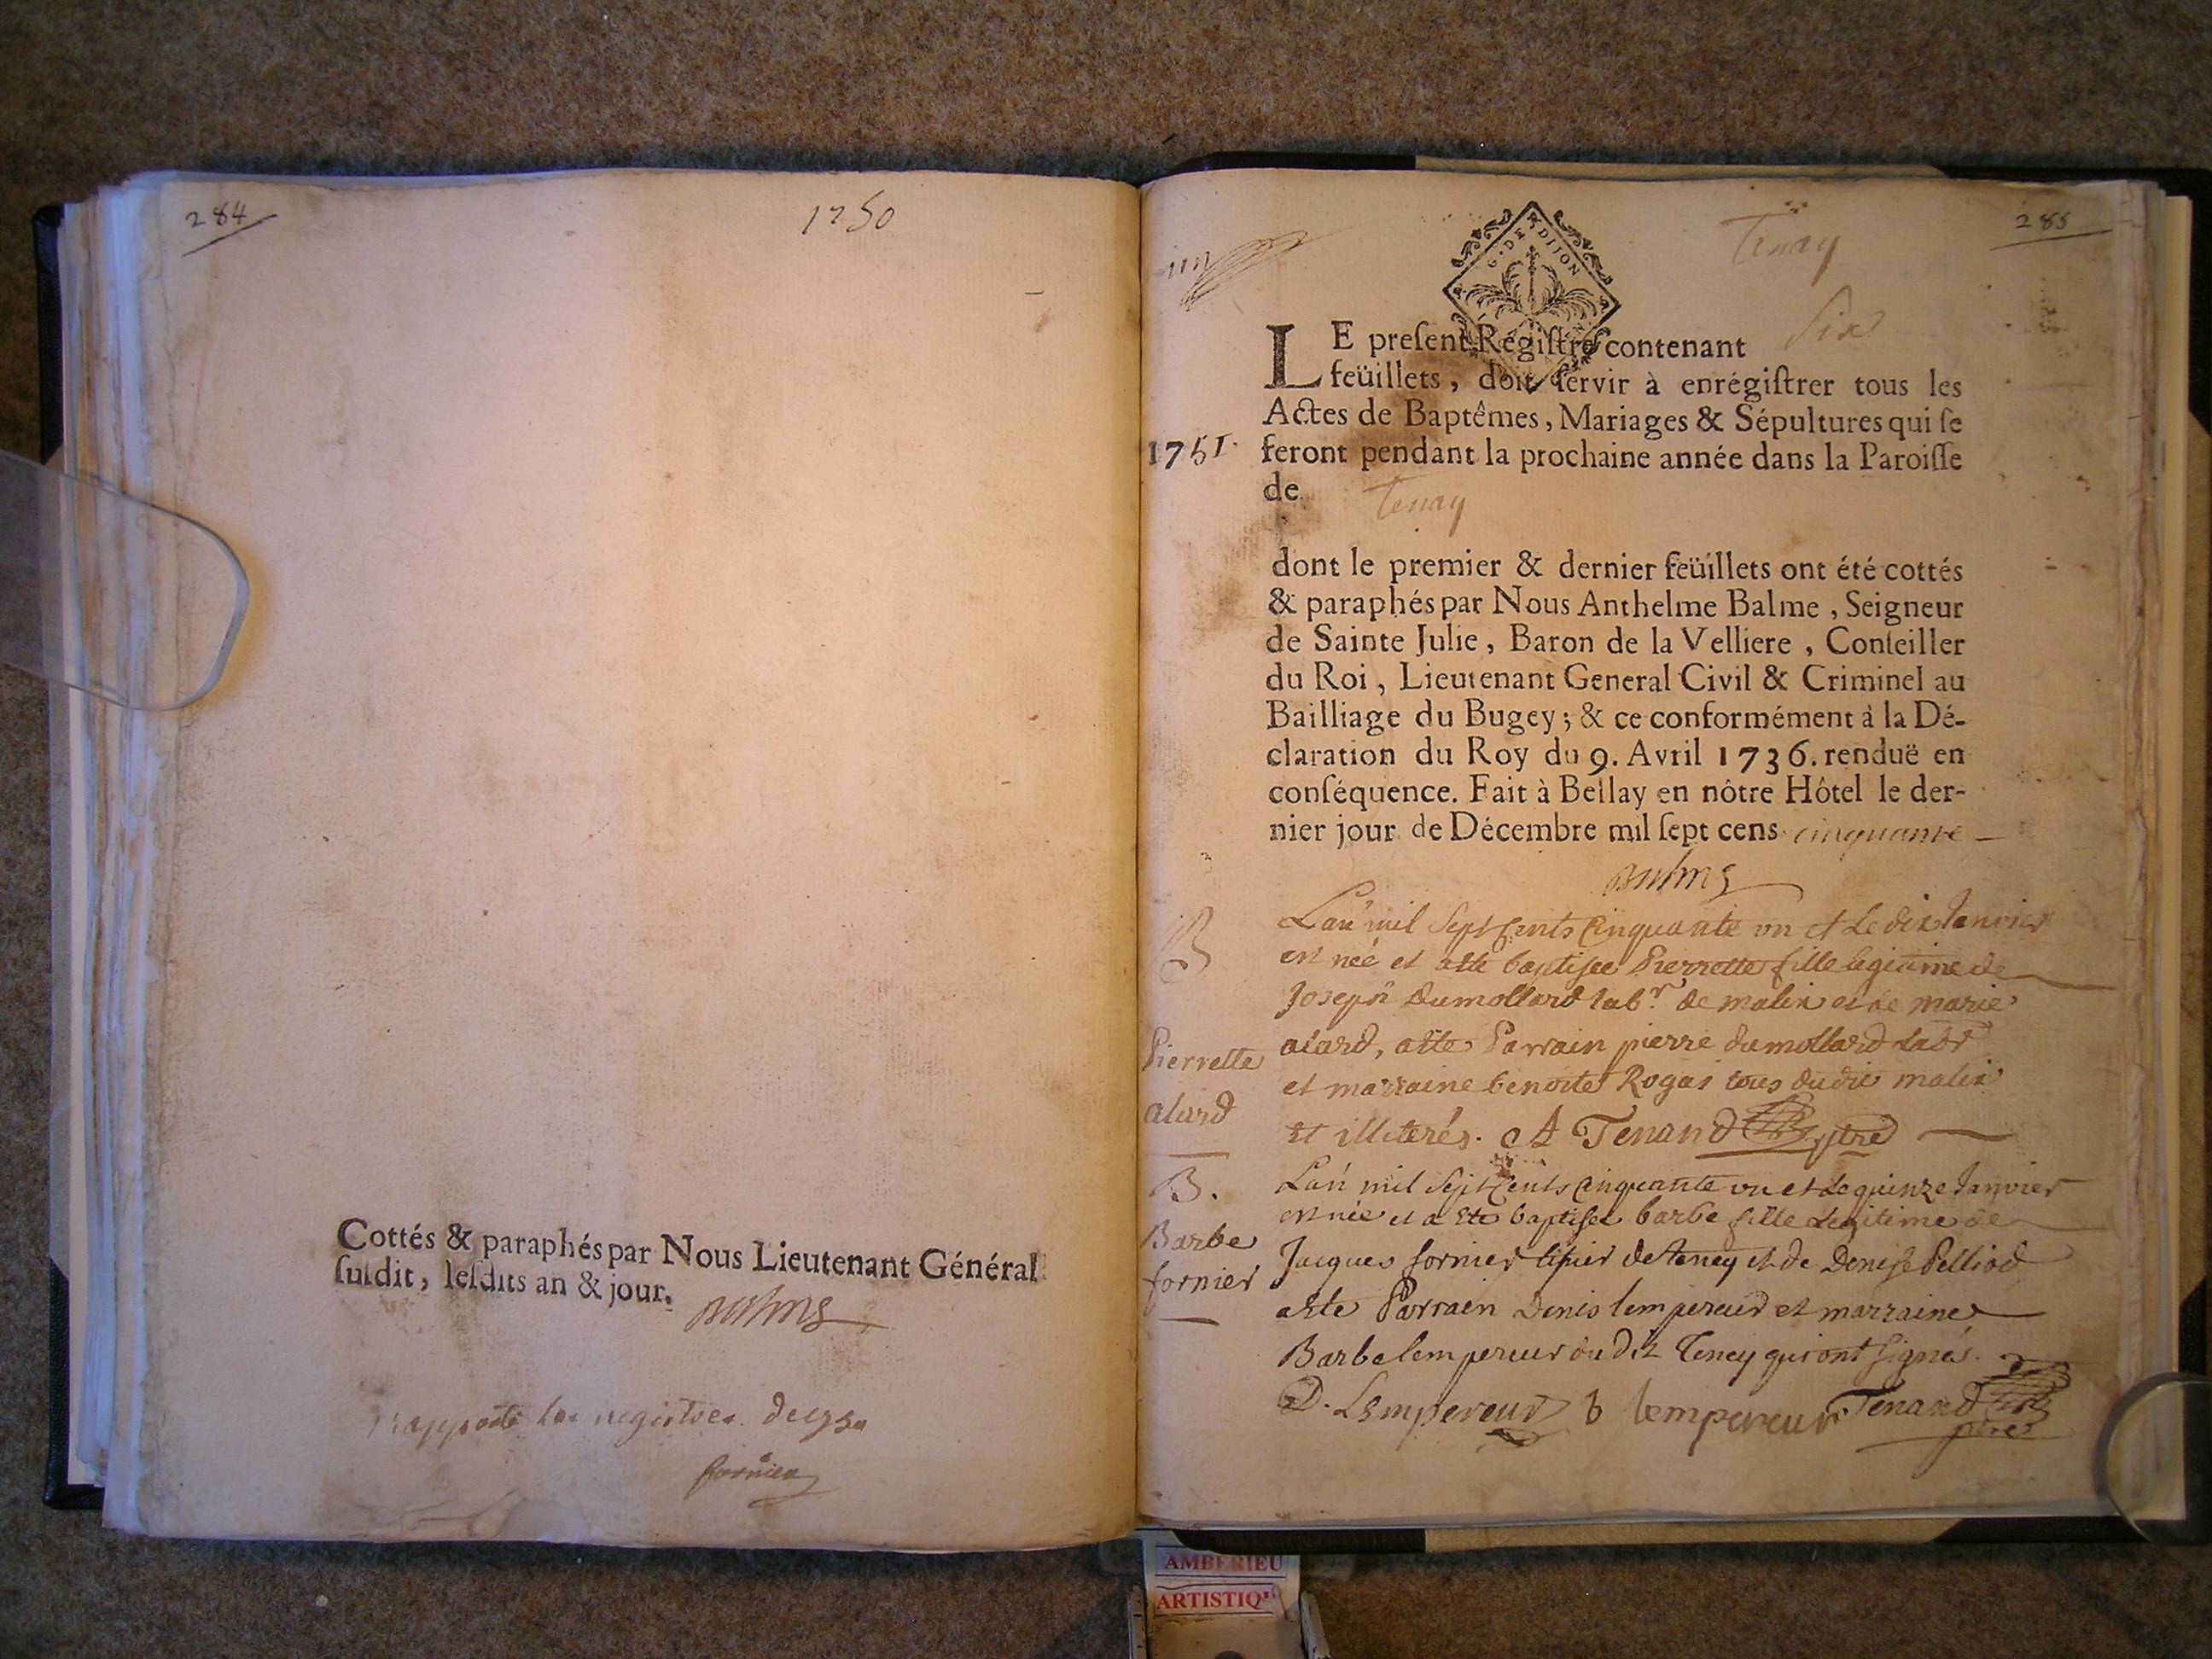 284
1750
Cottés & paraphés par Nous Lieutenant Général
ſuſdit, leſdits an & jour.
Balme
rapporté les registres de 1750
fornier
un
G. DE DIJON
Tenay
285
LE preſent Régiſtre contenant Six
feüillets, doit ſervir à enrégiſtrer tous les
Actes de Baptêmes, Mariages & Sépultures qui ſe
1751. feront pendant la prochaine année dans la Paroiſſe
de Tenay
dont le premier & dernier feüillets ont été cottés
& paraphés par Nous Anthelme Balme, Seigneur
de Sainte Julie, Baron de la Velliere, Conſeiller
du Roi, Lieutenant General Civil & Criminel au
Bailliage du Bugey; & ce conformément à la Dé-
claration du Roy du 9. Avril 1736. renduë en
conſéquence. Fait à Bellay en nôtre Hôtel le der-
nier jour de Décembre mil ſept cens cinquante
Balme
B
Pierrette
alard
L'an mil Sept Cents Cinquante un et le dix Janvier
est née et a esté baptisée Pierrette fille legitime de
Joseph Dumollard labr. de malix et de marie
alard, a esté Parrain pierre dumollard labr
et marraine benoite Rogas tous dudit malix
et illiterés. A Tenand ptre
B.
Barbe
fornier
L'an mil Sept Cents Cinquante un et le quinze Janvier
est née et a esté baptisée barbe fille Legitime de
Jacques fornier de teney et de Denise Pelliod
a esté Parrain Denis lempereur et marraine
Barbe lempereur du dit Teney qui ont signés.
D. Lempereur b lempereur Tenand ptre
AMBERIEU
ARTISTIQU